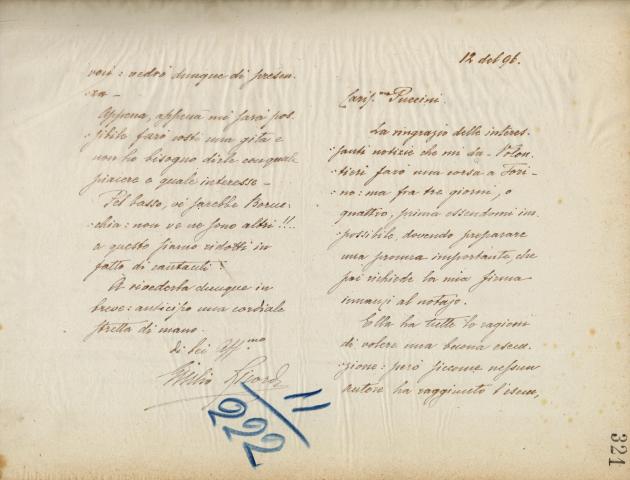 vori: vedrò dunque di presen-
za –
Appena, appena mi sarà pos-
sibile farò costì una gita e
non ho bisogno dirle con quale
piacere e quale interesse –
Pel basso, vi sarebbe Boruc-
chia: non ve ne sono altri!!..
a questo siamo ridotti in
fatto di cantanti!
A rivederla dunque in
breve: anticipo una cordiale
stretta di mano.
di lei Aff.mo
Giulio Ricordi
11/222
12 del 96.
Cariss.mo Puccini.
La ringrazio delle interes-
santi notizie che mi dà. Volon-
tieri farò una corsa a Tori-
no: ma fra tre giorni, o
quattro, prima essendomi im-
possibile, dovendo preparare
una pronta importante, che
poi richiede la mia firma
innanzi al notajo.
Ella ha tutte le ragioni
di volere una buona esecu-
zione: però siccome nessun
autore ha raggiunto l'esecu,
321